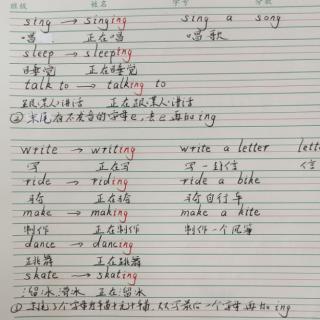 班级 姓名 学号 分数
sing → singing sing a song
唱 正在唱 唱歌
sleep → sleeping
睡觉 正在睡觉
talk to → talking to
跟某人讲话 正在跟某人讲话
② 末尾有不发音的字母e,去e再加ing
write → writing write a letter letter
写 正在写 写一封信 信
ride → riding ride a bike
骑 正在骑 骑自行车
make → making make a kite
制作 正在制作 制作一个风筝
dance → dancing
跳舞 正在跳舞
skate → skating
溜冰,滑冰 正在溜冰
末尾3个字母为辅+元+辅,双写最后一个字母再加ing